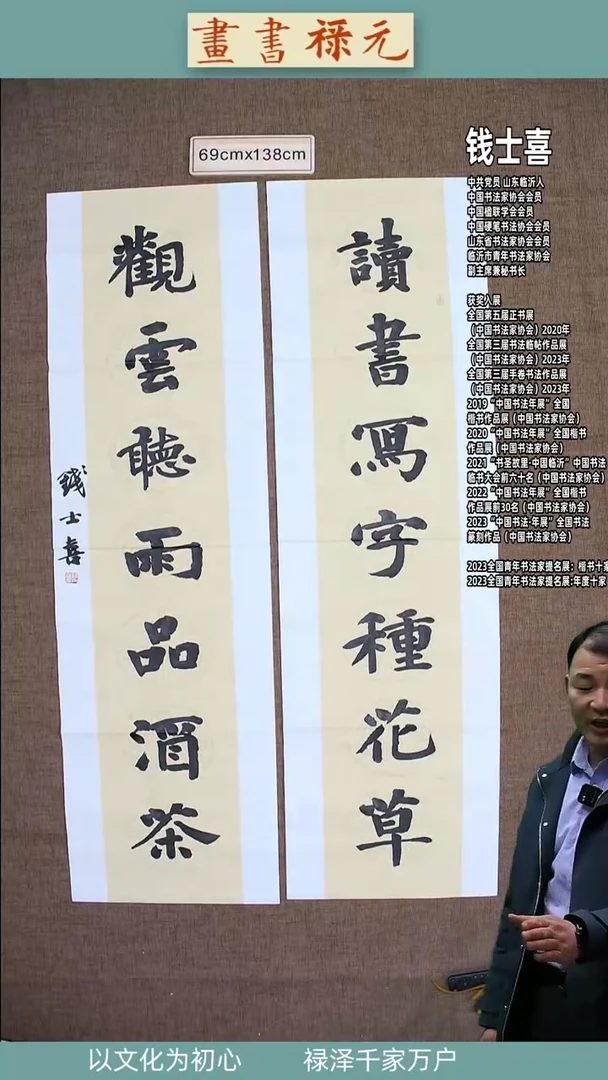 元禄書畫
69cmx138cm
讀書寫字種花草
觀雲聽雨品酒茶
钱士喜
钱士喜
中共党员 山东临沂人
中国书法家协会会员
中国楹联学会会员
中国硬笔书法协会会员
山东省书法家协会会员
临沂市青年书法家协会
副主席兼秘书长
获奖入展
全国第五届正书展
（中国书法家协会）2020年
全国第三届书法临帖作品展
（中国书法家协会）2023年
全国第三届手卷书法作品展
（中国书法家协会）2023年
2019“中国书法年展”全国
楷书作品展（中国书法家协会）
2020“中国书法年展”全国楷书
作品展（中国书法家协会）
2021“书圣故里·中国临沂”中国书法
临书大会前六十名（中国书法家协会）
2022“中国书法年展”全国楷书
作品展前30名（中国书法家协会）
2023“中国书法·年展”全国书法
篆刻作品（中国书法家协会）
2023全国青年书法家提名展：楷书十家
2023全国青年书法家提名展:年度十家
以文化为初心 禄泽千家万户